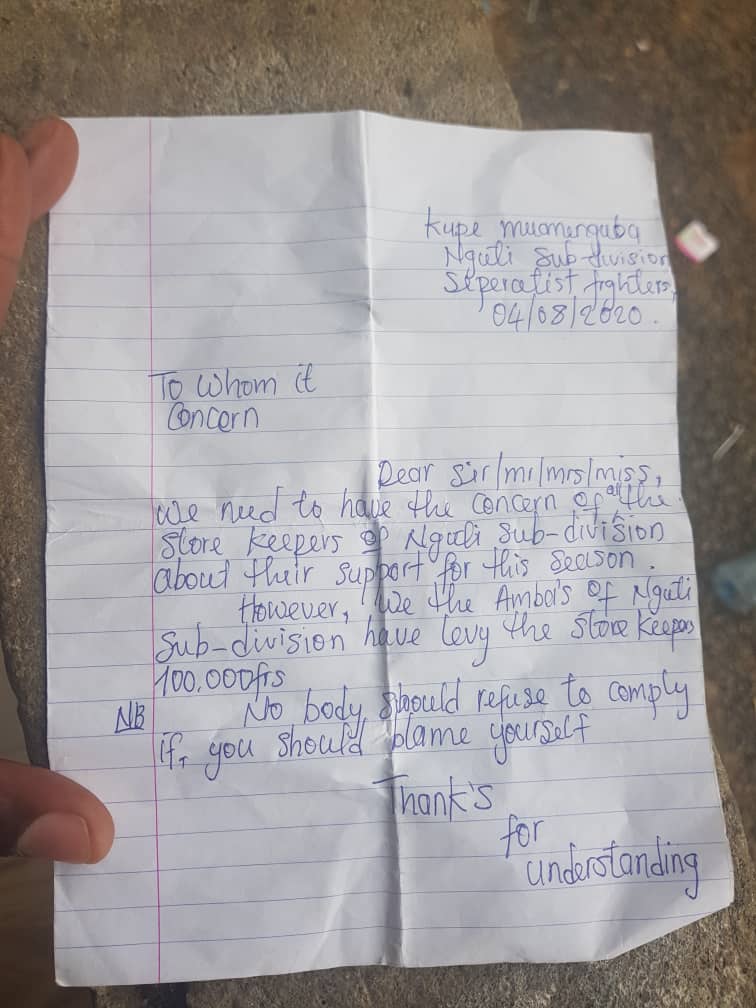 Kupe muanenguba
Nguti Sub-division
Seperatist fighters,
04/08/2020.
To Whom it
Concern
Dear Sir/mr/mrs/miss,
We need to have the concern of all the
Store keepers of Nguti Sub-division
about their support for this season.
However, We the Amba's of Nguti
Sub-division have levy the Store keepers
100,000frs
NB No body should refuse to comply
if, you should blame yourself
Thank's
for
understanding